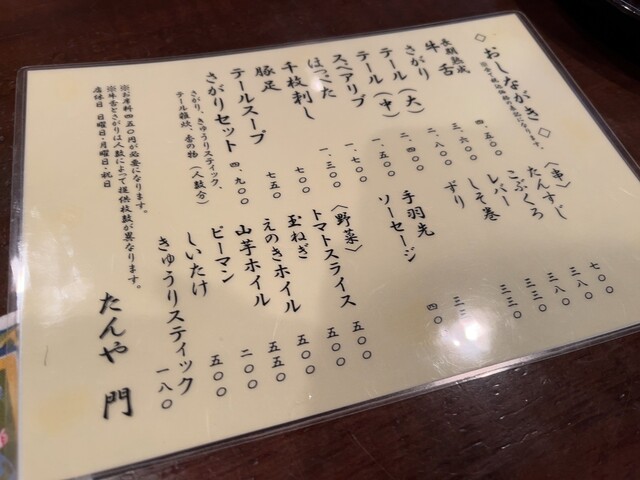 ◇おしながき◇
税込価格の表記になります。
長期熟成
牛舌 四、五〇〇
さがり 三、六〇〇
テール(大) 二、八〇〇
テール(中) 二、四〇〇
スペアリブ 一、五〇〇
ほっぺた 一、七〇〇
千枚刺し 一、三〇〇
豚足 七〇〇
テールスープ 七五〇
さがりセット 四、九〇〇
さがり、きゅうりスティック、
テール雑炊、香の物(人数分)
〈串〉
たんすじ 七〇〇
こぶくろ 三八〇
レバー 三八〇
しそ巻 三三〇
ずり 三三〇
手羽先
ソーセージ
〈野菜〉
トマトスライス 五〇〇
玉ねぎ 五〇〇
えのきホイル 五五〇
山芋ホイル 五五〇
ピーマン 二〇〇
しいたけ 五〇〇
きゅうりスティック 一八〇
※お席料四五〇円が必要になります。
※牛舌とさがりは人数によって提供枚数が異なります。
店休日 日曜日・月曜日・祝日
たんや 門